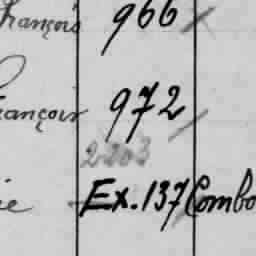 François 966
François 972
2203
Ex. 137 Combo